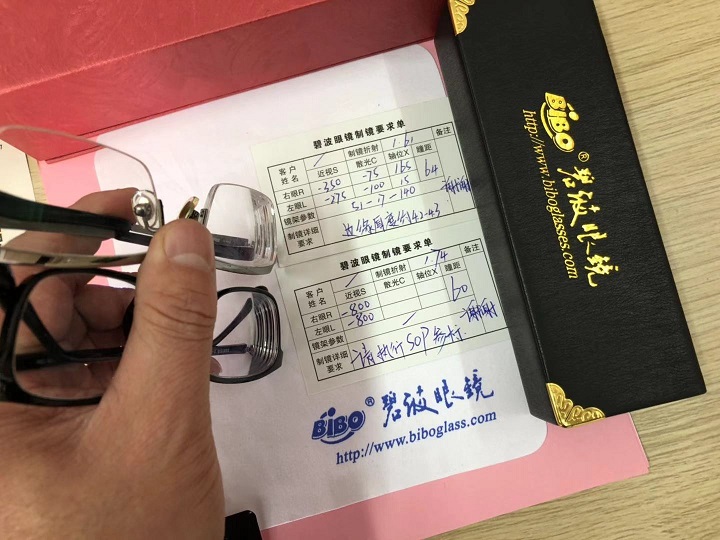 碧波眼镜制镜要求单
客户姓名 制镜折射 1.61 备注
近视S 散光C 轴位X 瞳距
右眼R -350 -75 165 64
左眼L -275 -100 15
镜架参数 51-17-140 谢谢
制镜详细要求
碧波眼镜制镜要求单
客户姓名 制镜折射 1.74 备注
近视S 散光C 轴位X 瞳距
右眼R -800 60
左眼L -800
镜架参数 谢谢
制镜详细要求 请执行SOP参标
BiBO ® 碧波眼镜
http://www.biboglass.com
BiBO ® 碧波眼镜
http://www.biboglasses.com